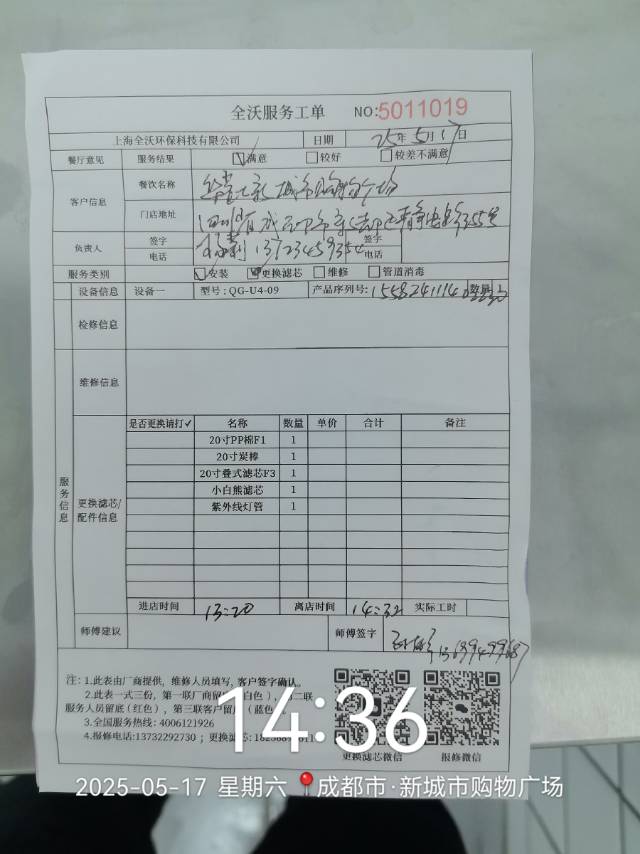 全沃服务工单 NO:5011019
上海全沃环保科技有限公司 日期 25年5月17日
餐厅意见 服务结果 ☑满意 □较好 □较差不满意
客户信息 餐饮名称 城市购物广场
门店地址
负责人 签字 签字
电话 电话
服务类别 □安装 ☑更换滤芯 □维修 □管道消毒
设备信息 设备一 型号:QG-U4-09 产品序列号: 数量
检修信息
维修信息
服务信息
更换滤芯/
配件信息
是否更换请打✓ 名称 数量 单价 合计 备注
20寸PP棉F1 1
20寸炭棒 1
20寸叠式滤芯F3 1
小白熊滤芯 1
紫外线灯管 1
进店时间 13:20 离店时间 14:32 实际工时
师傅建议 师傅签字
注: 1.此表由厂商提供, 维修人员填写, 客户签字确认。
2.此表一式三份, 第一联厂商留底(白色), 第二联
服务人员留底(红色), 第三联客户留底(蓝色
3.全国服务热线: 4006121926
4.报修电话:13732292730 ; 更换滤芯:
更换滤芯微信 报修微信
14:36
2025-05-17 星期六 成都市·新城市购物广场